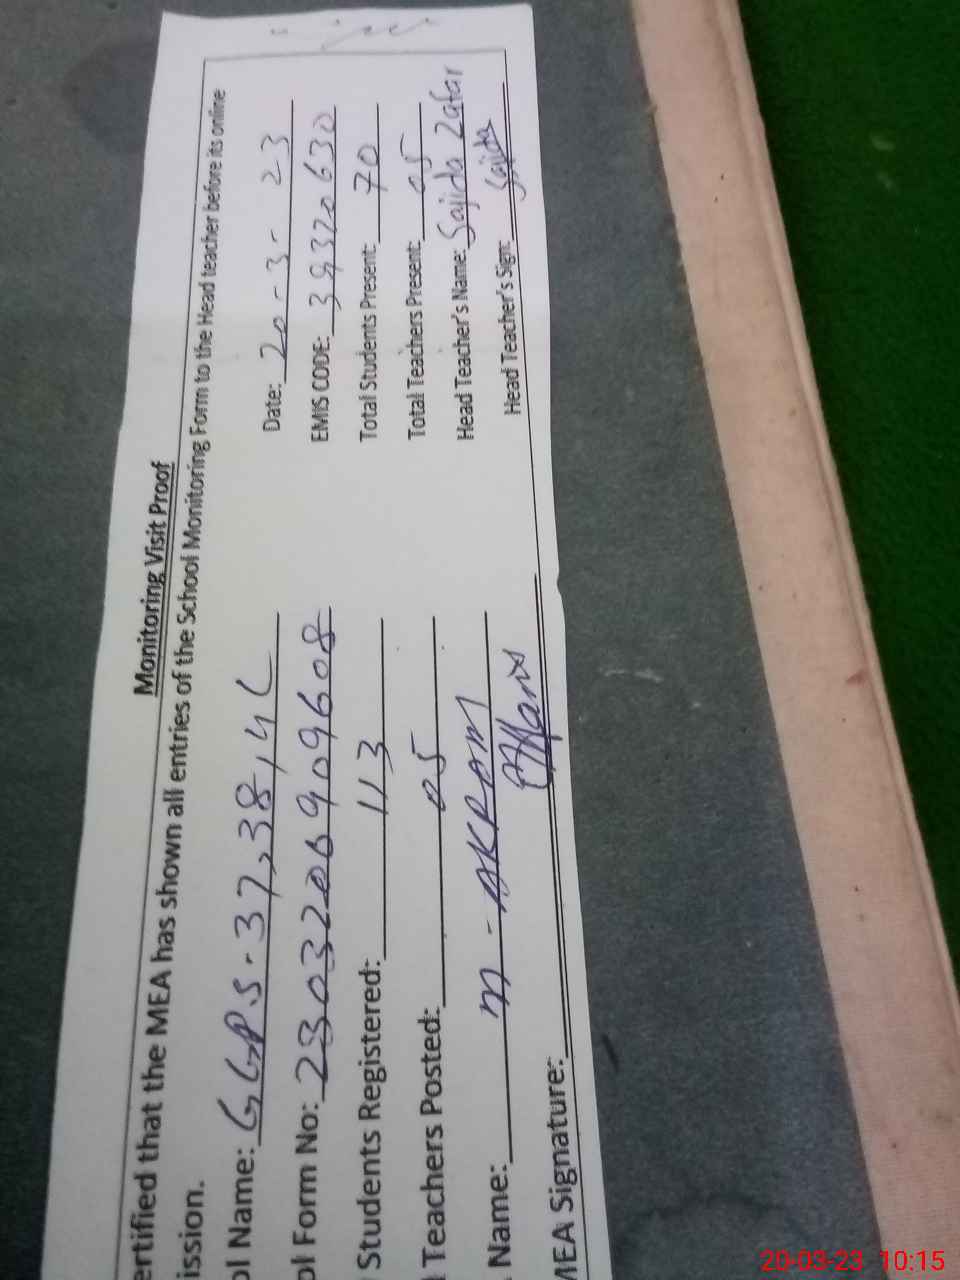 Monitoring Visit Proof
ertified that the MEA has shown all entries of the School Monitoring Form to the Head teacher before its online
ission.
ol Name: GGPS. 37,38,14L
Date: 20-3-23
ol Form No: 2303206909608
EMIS CODE: 39320630
Students Registered: 113
Total Students Present: 70
Teachers Posted: 05
Total Teachers Present: 05
Name: M-AKRAM
Head Teacher's Name: Sajida Zafar
MEA Signature:
Head Teacher's Sign: Sajida
20-03-23 10:15